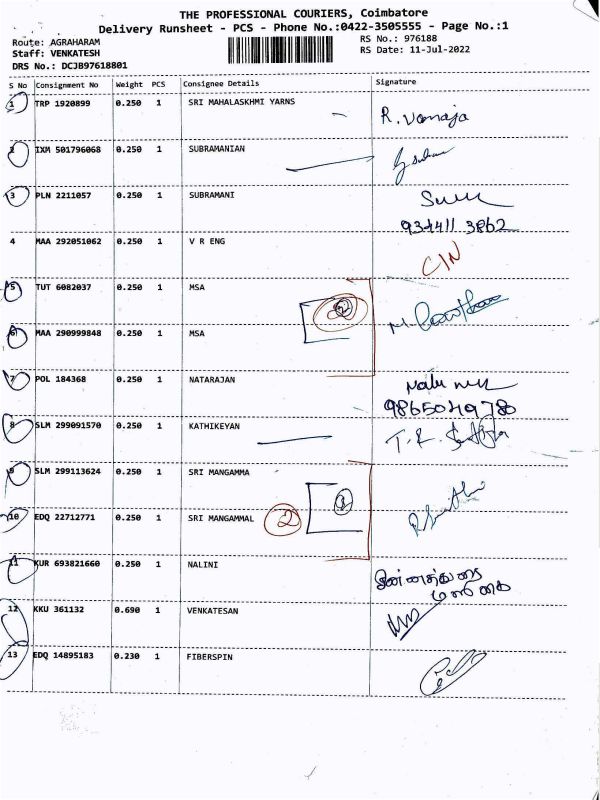 THE PROFESSIONAL COURIERS, Coimbatore
Delivery Runsheet - PCS - Phone No.:0422-3505555 - Page No.:1
Route: AGRAHARAM
RS No.: 976188
Staff: VENKATESH
RS Date: 11-Jul-2022
DRS No.: DCJB97618801
S No Consignment No Weight PCS Consignee Details Signature
1 TRP 1920899 0.250 1 SRI MAHALASKHMI YARNS R. Vanaja
2 IXM 501796068 0.250 1 SUBRAMANIAN
3 PLN 2211057 0.250 1 SUBRAMANI
4 MAA 292051062 0.250 1 V R ENG C/N
5 TUT 6082037 0.250 1 MSA 2
6 MAA 290999848 0.250 1 MSA
7 POL 184368 0.250 1 NATARAJAN
8 SLM 299091570 0.250 1 KATHIKEYAN
9 SLM 299113624 0.250 1 SRI MANGAMMA
10 EDQ 22712771 0.250 1 SRI MANGAMMAL 2
11 KUR 693821660 0.250 1 NALINI
12 KKU 361132 0.690 1 VENKATESAN
13 EDQ 14895183 0.230 1 FIBERSPIN